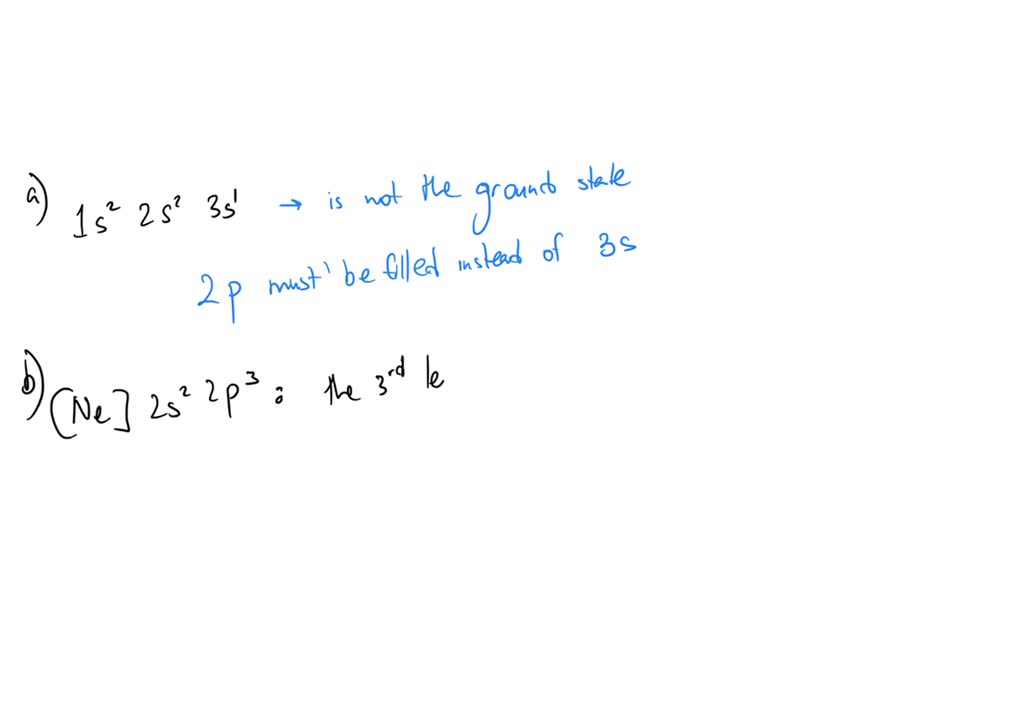 a) 1s² 2s² 3s¹ → is not the ground state
2p must be filled instead of 3s
b) [Ne] 2s² 2p³ : the 3rd le